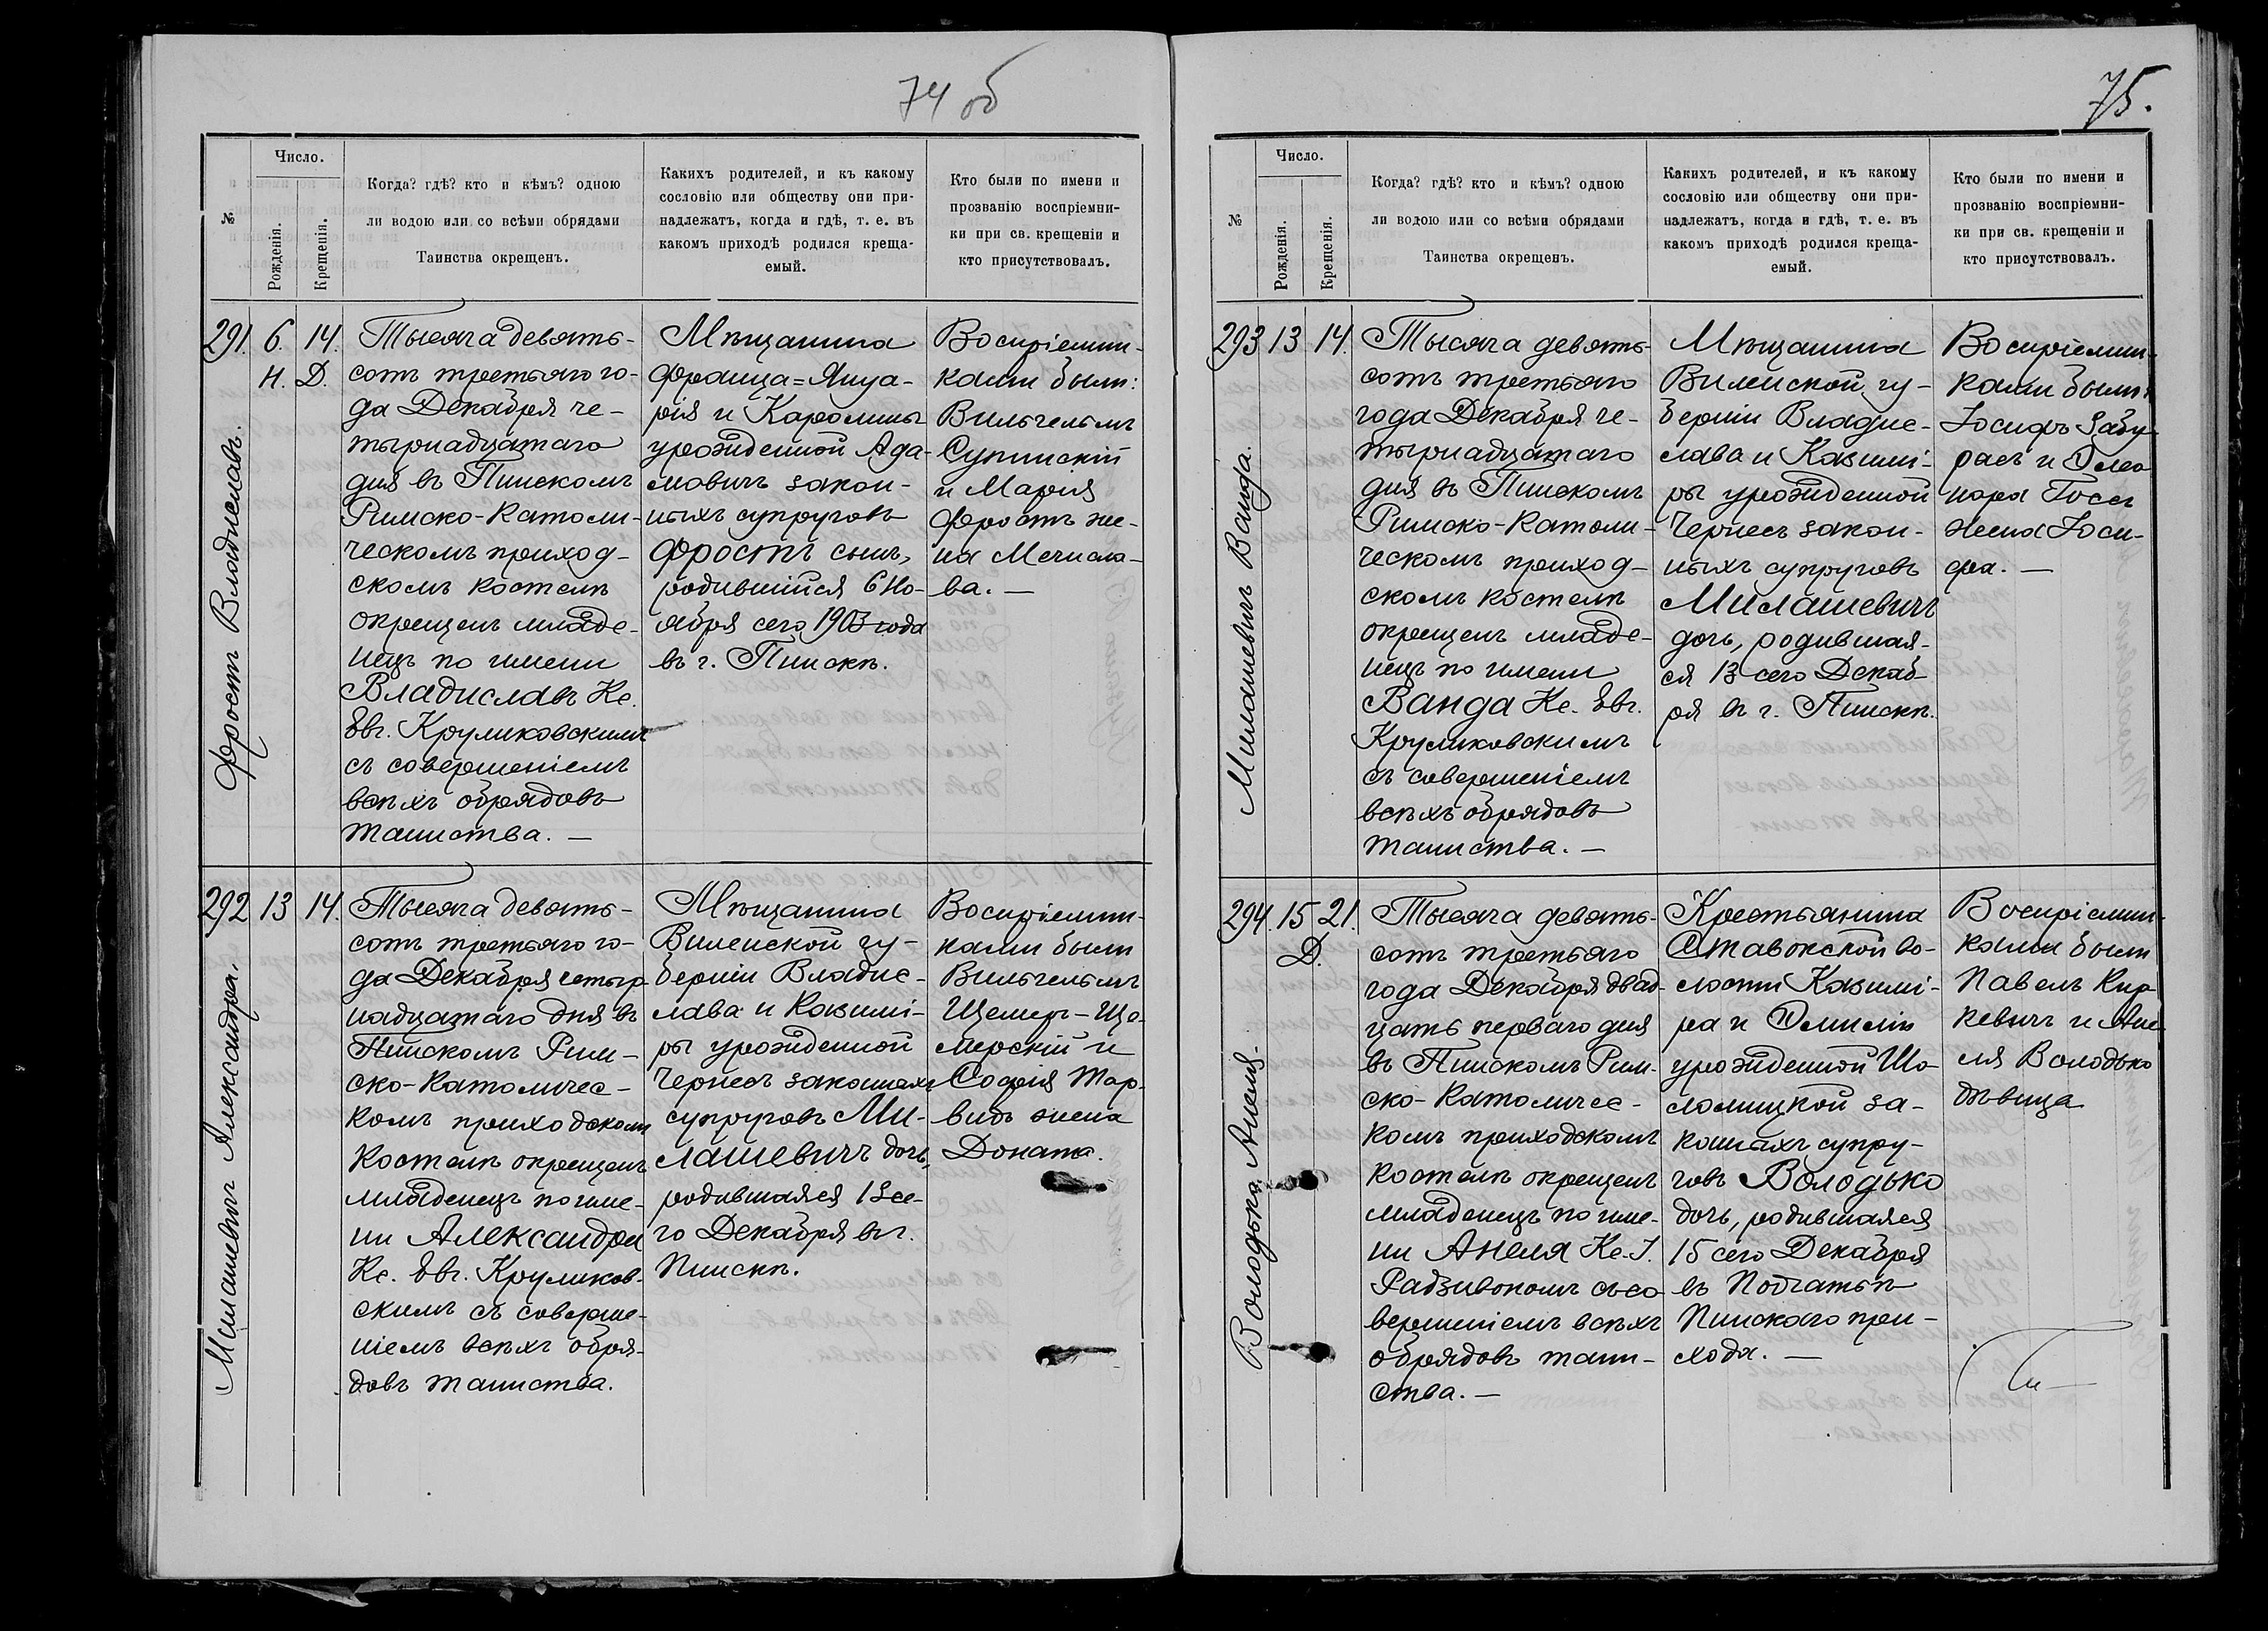 74 об
№
Число.
Рожденія.
Крещенія.
Когда? гдѣ? кто и кѣмъ? одною
ли водою или со всѣми обрядами
Таинства окрещенъ.
Какихъ родителей, и къ какому
сословію или обществу они при-
надлежатъ, когда и гдѣ, т. е. въ
какомъ приходѣ родился креща-
емый.
Кто были по имени и
прозванію воспріемни-
ки при св. крещеніи и
кто присутствовалъ.
291.
Фростъ Владиславъ.
6.
Н.
14.
Д.
Тысяча девять-
сотъ третьяго го-
да Декабря че-
тырнадцатаго
дня въ Пинскомъ
Римско-Католи-
ческомъ приход-
скомъ костелѣ
окрещенъ младе-
нецъ по имени
Владиславъ Кс.
Евг. Круликовскимъ
съ совершеніемъ
всѣхъ обрядовъ
таинства. —
Мѣщанина
Франца=Януа-
рія и Каролины
урожденной Ада-
мовичъ закон-
ныхъ супруговъ
Фростъ сынъ,
родившійся 6 Но-
ября сего 1903 года
въ г. Пинскѣ.
Воспріемни-
ками были:
Вильгельмъ
Супинскій
и Марія
Фростъ же-
на Мечисла-
ва. —
292
Милашевичъ Александра.
13
14.
Тысяча девять-
сотъ третьяго го-
да Декабря четыр-
надцатаго дня въ
Пинскомъ Рим-
ско-Католичес-
комъ приходскомъ
костелѣ окрещенъ
младенецъ по име-
ни Александра
Кс. Евг. Круликов-
скимъ съ соверше-
ніемъ всѣхъ обря-
довъ таинства.
Мѣщанина
Виленской гу-
берніи Владис-
лава и Казими-
ры урожденной
Чернесъ законныхъ
супруговъ Ми-
лашевичъ дочь,
родившаяся 13 се-
го Декабря въ г.
Пинскѣ.
Воспріемни-
ками были
Вильгельмъ
Щемеръ-Ще-
мерскій и
Софія Тар-
видъ жена
Доната.
75.
№
Число.
Рожденія.
Крещенія.
Когда? гдѣ? кто и кѣмъ? одною
ли водою или со всѣми обрядами
Таинства окрещенъ.
Какихъ родителей, и къ какому
сословію или обществу они при-
надлежатъ, когда и гдѣ, т. е. въ
какомъ приходѣ родился креща-
емый.
Кто были по имени и
прозванію воспріемни-
ки при св. крещеніи и
кто присутствовалъ.
293
Милашевичъ Ванда.
13
14.
Тысяча девять-
сотъ третьяго
года Декабря че-
тырнадцатаго
дня въ Пинскомъ
Римско-Католи-
ческомъ приход-
скомъ костелѣ
окрещенъ младе-
нецъ по имени
Ванда Кс. Евг.
Круликовскимъ
съ совершеніемъ
всѣхъ обрядовъ
таинства. —
Мѣщанина
Виленской гу-
берніи Владис-
лава и Казими-
ры урожденной
Чернесъ закон-
ныхъ супруговъ
Милашевичъ
дочь, родившая-
ся 13 сего Декаб-
ря въ г. Пинскѣ.
Воспріемни-
ками были:
Іосифъ Забу-
расъ и Элео-
нора Госсъ
жена Іоси-
фа. —
294.
Володько Анеля.
15
Д.
21.
Тысяча девять-
сотъ третьяго
года Декабря двад-
цать перваго дня
въ Пинскомъ Рим-
ско-Католичес-
комъ приходскомъ
костелѣ окрещенъ
младенецъ по име-
ни Анеля Кс. I.
Радзивономъ съ со-
вершеніемъ всѣхъ
обрядовъ таин-
ства. —
Крестьянина
Ставокской во-
лости Казими-
ра и Эмиліи
урожденной Шо-
ломицкой за-
конныхъ супру-
говъ Володько
дочь, родившаяся
15 сего Декабря
въ Почапѣ
Пинскаго при-
хода. —
Воспріемни-
ками были
Павелъ Кир-
кевичъ и Ане-
ля Володько
дѣвица